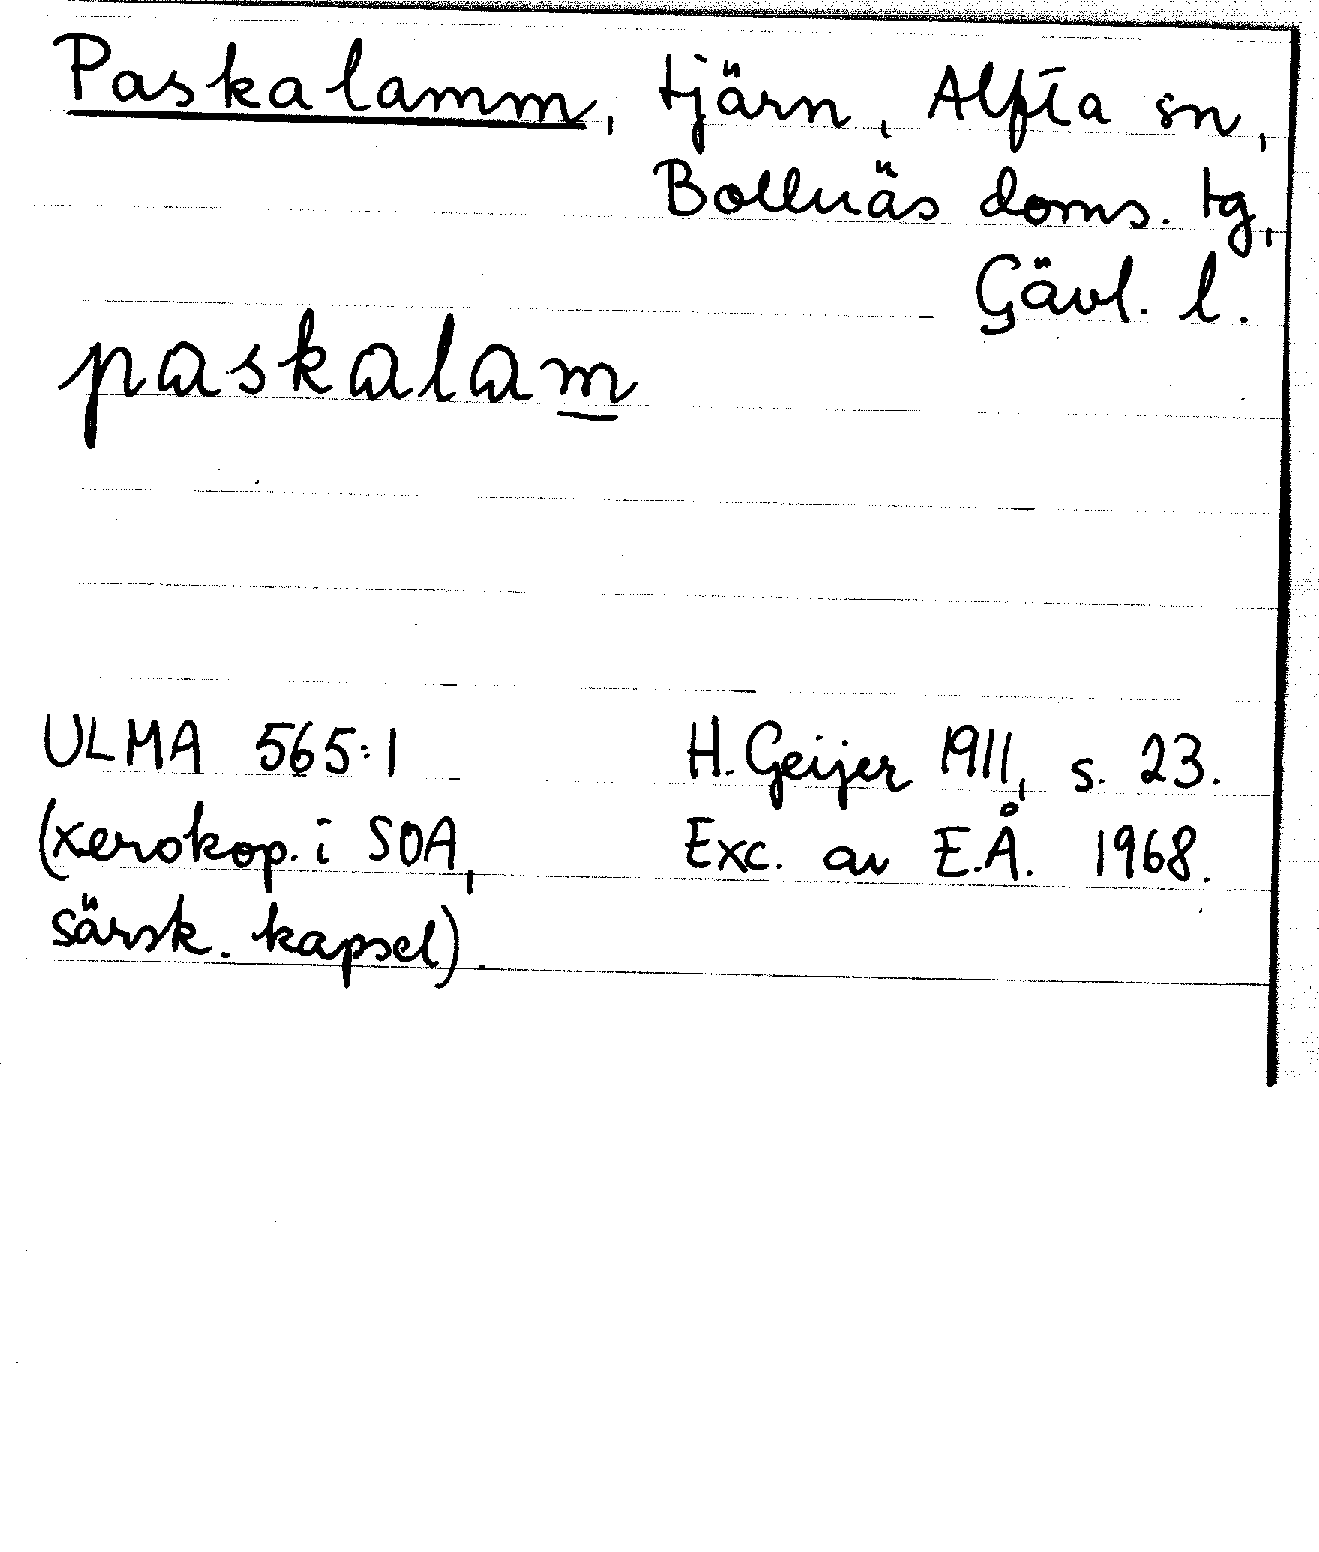 Paskalamm, tjärn, Alfta sn,
Bollnäs doms. tg,
Gävl. l.
paskalam
ULMA 565:1
(xerokop. i SOA,
särsk. kapsel).
H. Geijer 1911, s. 23.
Exc. av E.Å. 1968.